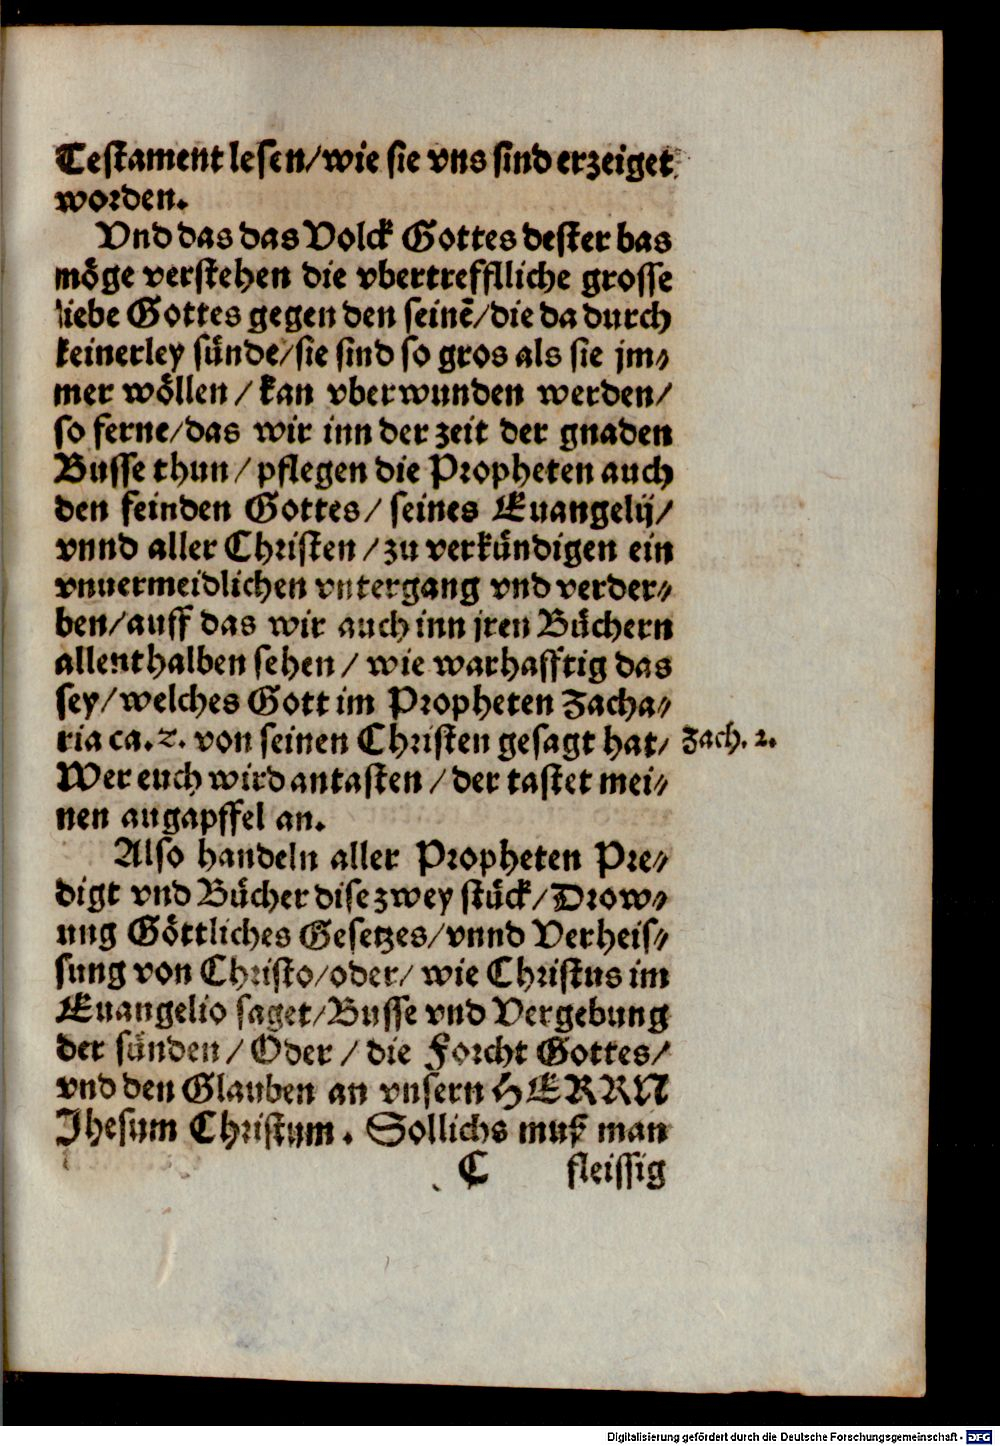 Testament lesen/wie sie vns sind erzeiget
worden.
Vnd das das Volck Gottes dester bas
möge verstehen die vbertrefflliche grosse
liebe Gottes gegen den seinẽ/die da durch
keinerley sünde/sie sind so gros als sie jm⸗
mer wöllen/kan vberwunden werden/
so ferne/das wir inn der zeit der gnaden
Busse thun/pflegen die Propheten auch
den feinden Gottes/seines Euangelij/
vnnd aller Christen/zu verkündigen ein
vnuermeidlichen vntergang vnd verder⸗
ben/auff das wir auch inn jren Büchern
allenthalben sehen/wie warhafftig das
sey/welches Gott im Propheten Zacha⸗
ria ca.2. von seinen Christen gesagt hat/ Zach. 2.
Wer euch wird antasten/der tastet mei⸗
nen augapffel an.
Also handeln aller Propheten Pre⸗
digt vnd Bücher dise zwey stück/Drow⸗
ung Göttliches Gesetzes/vnnd Verheis⸗
sung von Christo/oder/wie Christus im
Euangelio saget/Busse vnd Vergebung
der sünden/Oder/die Forcht Gottes/
vnd den Glauben an vnsern HERRN
Jhesum Christum. Sollichs muß man
C fleissig
Digitalisierung gefördert durch die Deutsche Forschungsgemeinschaft - DFG